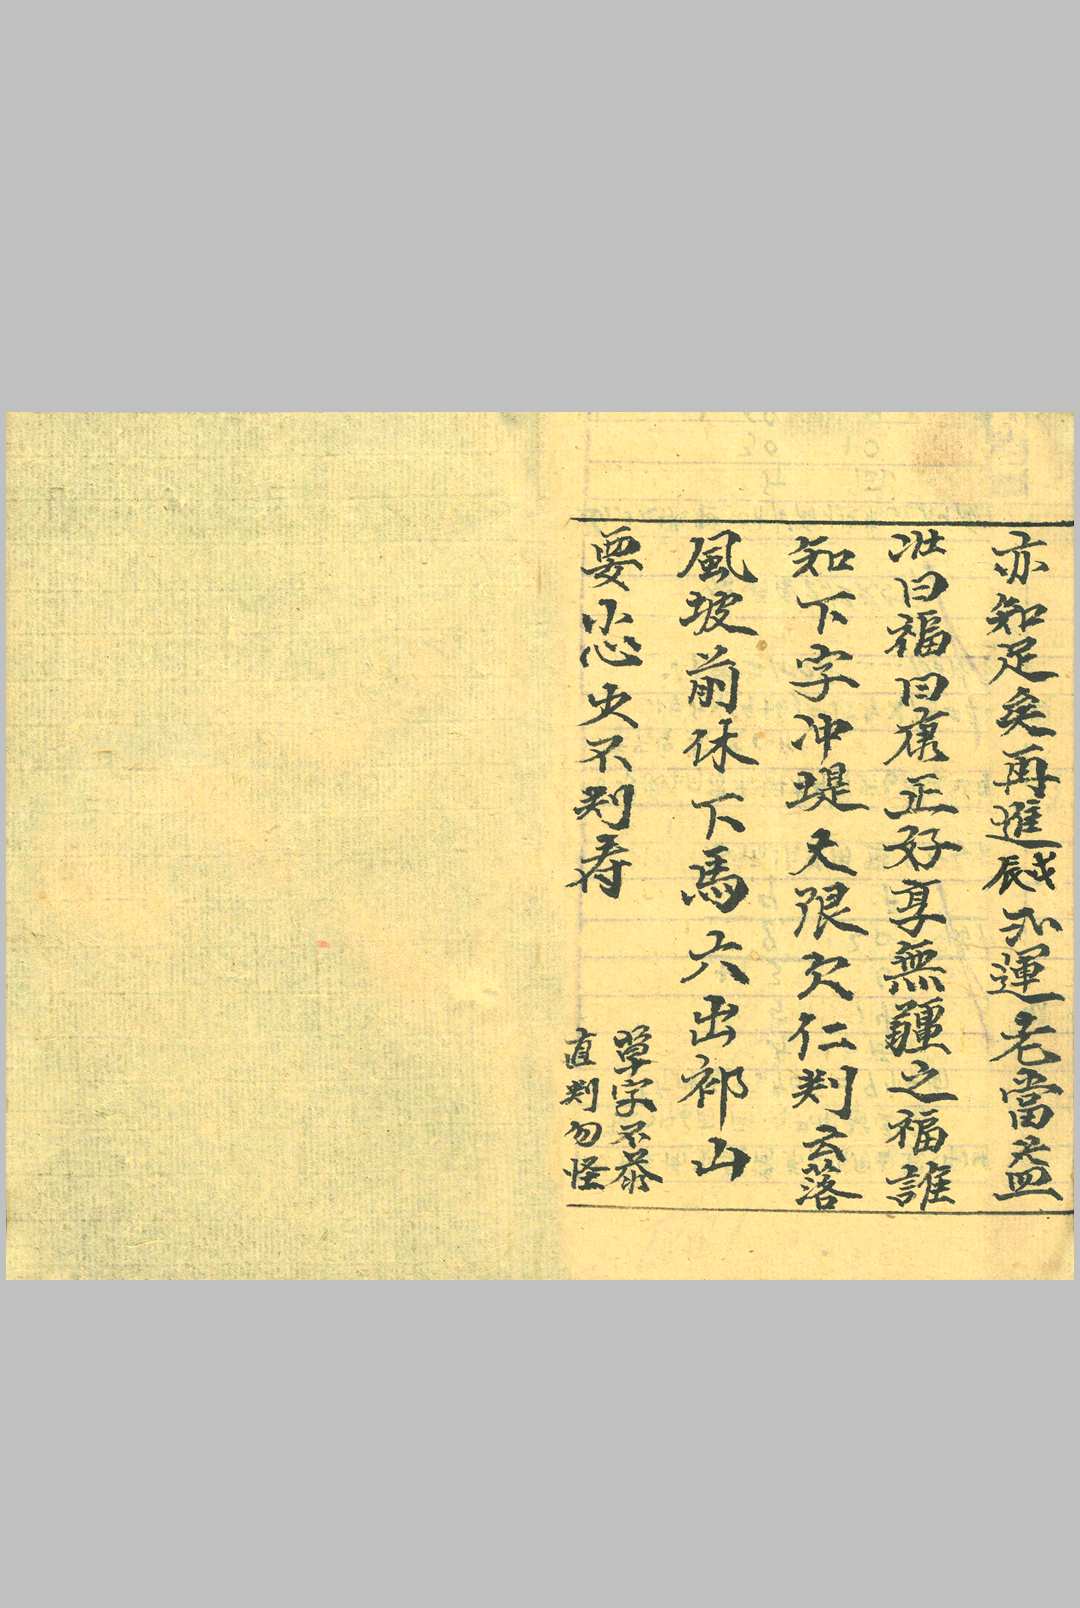 亦知足矣再進戊辰弍運老當益
壯曰福曰康正好享無疆之福誰
知下字冲堤大限欠仁判云落
風坡前休下馬六出祁山
要小心史不判寿
草字不恭
直判勿怪